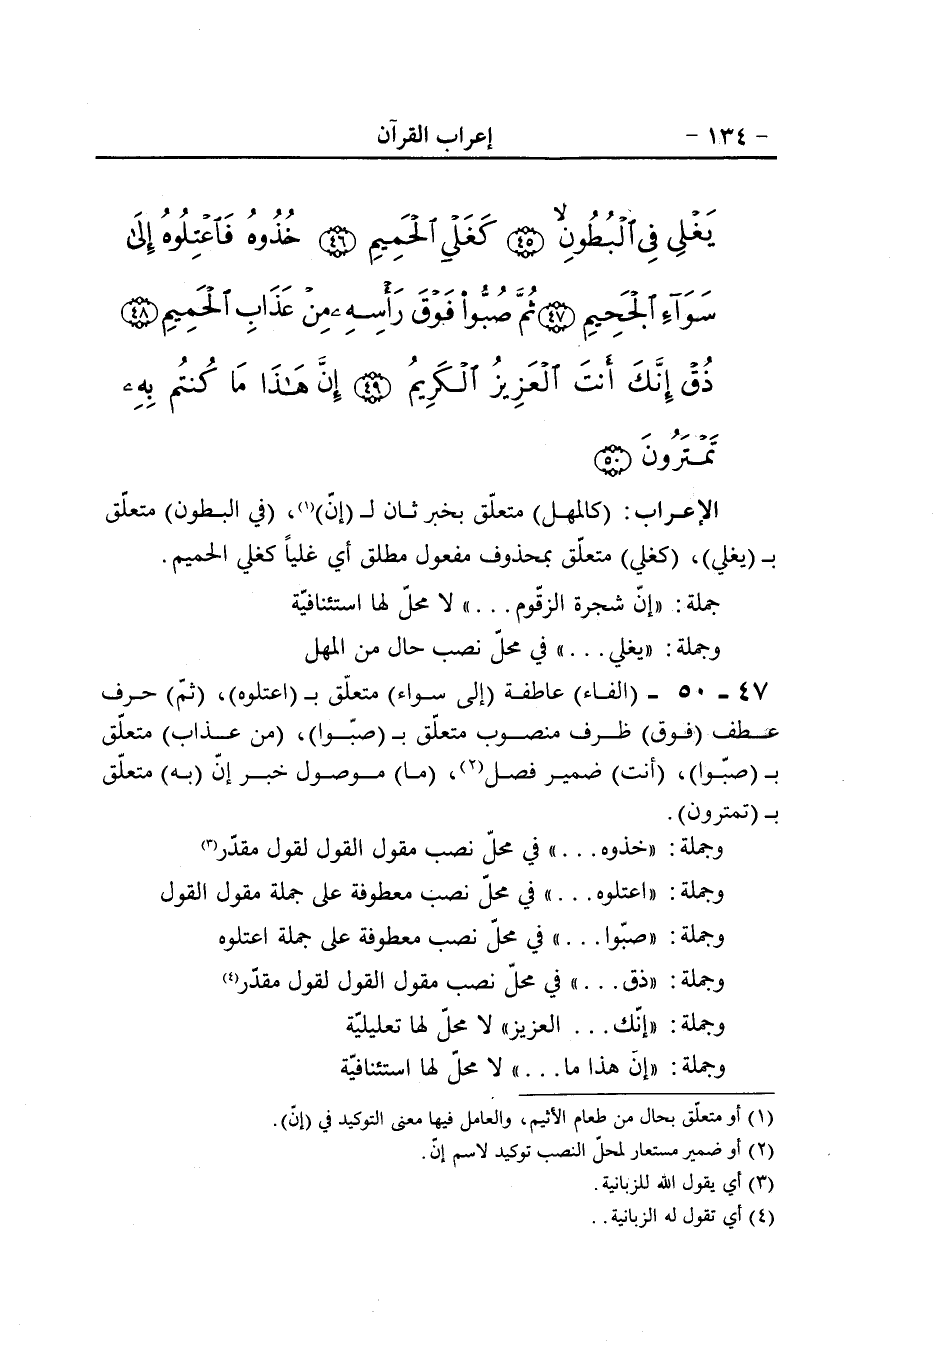 - ١٣٤ - إعراب القرآن
يَغْلِي فِي ٱلْبُطُونِ ۙ ﴿٤٥﴾ كَغَلْيِ ٱلْحَمِيمِ ﴿٤٦﴾ خُذُوهُ فَٱعْتِلُوهُ إِلَىٰ
سَوَآءِ ٱلْجَحِيمِ ﴿٤٧﴾ ثُمَّ صُبُّوا۟ فَوْقَ رَأْسِهِۦ مِنْ عَذَابِ ٱلْحَمِيمِ ﴿٤٨﴾
ذُقْ إِنَّكَ أَنتَ ٱلْعَزِيزُ ٱلْكَرِيمُ ﴿٤٩﴾ إِنَّ هَٰذَا مَا كُنتُم بِهِۦ
تَمْتَرُونَ ﴿٥٠﴾
الإعراب: (كالمهل) متعلّق بخبر ثان لـ (إنّ)(١)، (في البطون) متعلّق
بـ (يغلي)، (كغلي) متعلّق بمحذوف مفعول مطلق أي غلياً كغلي الحميم.
جملة: «إنّ شجرة الزقّوم. . .» لا محلّ لها استئنافيّة
وجملة: «يغلي. . .» في محلّ نصب حال من المهل
٤٧ - ٥٠ - (الفاء) عاطفة (إلى سواء) متعلّق بـ (اعتلوه)، (ثمّ) حرف
عطف (فوق) ظرف منصوب متعلّق بـ (صبّوا)، (من عذاب) متعلّق
بـ (صبّوا)، (أنت) ضمير فصل(٢)، (ما) موصول خبر إنّ (به) متعلّق
بـ (تمترون).
وجملة: «خذوه. . .» في محلّ نصب مقول القول لقول مقدّر(٣)
وجملة: «اعتلوه. . .» في محلّ نصب معطوفة على جملة مقول القول
وجملة: «صبّوا. . .» في محلّ نصب معطوفة على جملة اعتلوه
وجملة: «ذق. . .» في محلّ نصب مقول القول لقول مقدّر(٤)
وجملة: «إنّك. . . العزيز» لا محلّ لها تعليليّة
وجملة: «إنّ هذا ما. . .» لا محلّ لها استئنافيّة
(١) أو متعلّق بحال من طعام الأثيم، والعامل فيها معنى التوكيد في (إنّ).
(٢) أو ضمير مستعار لمحلّ النصب توكيد لاسم إنّ.
(٣) أي يقول الله للزبانية.
(٤) أي تقول له الزبانية. .